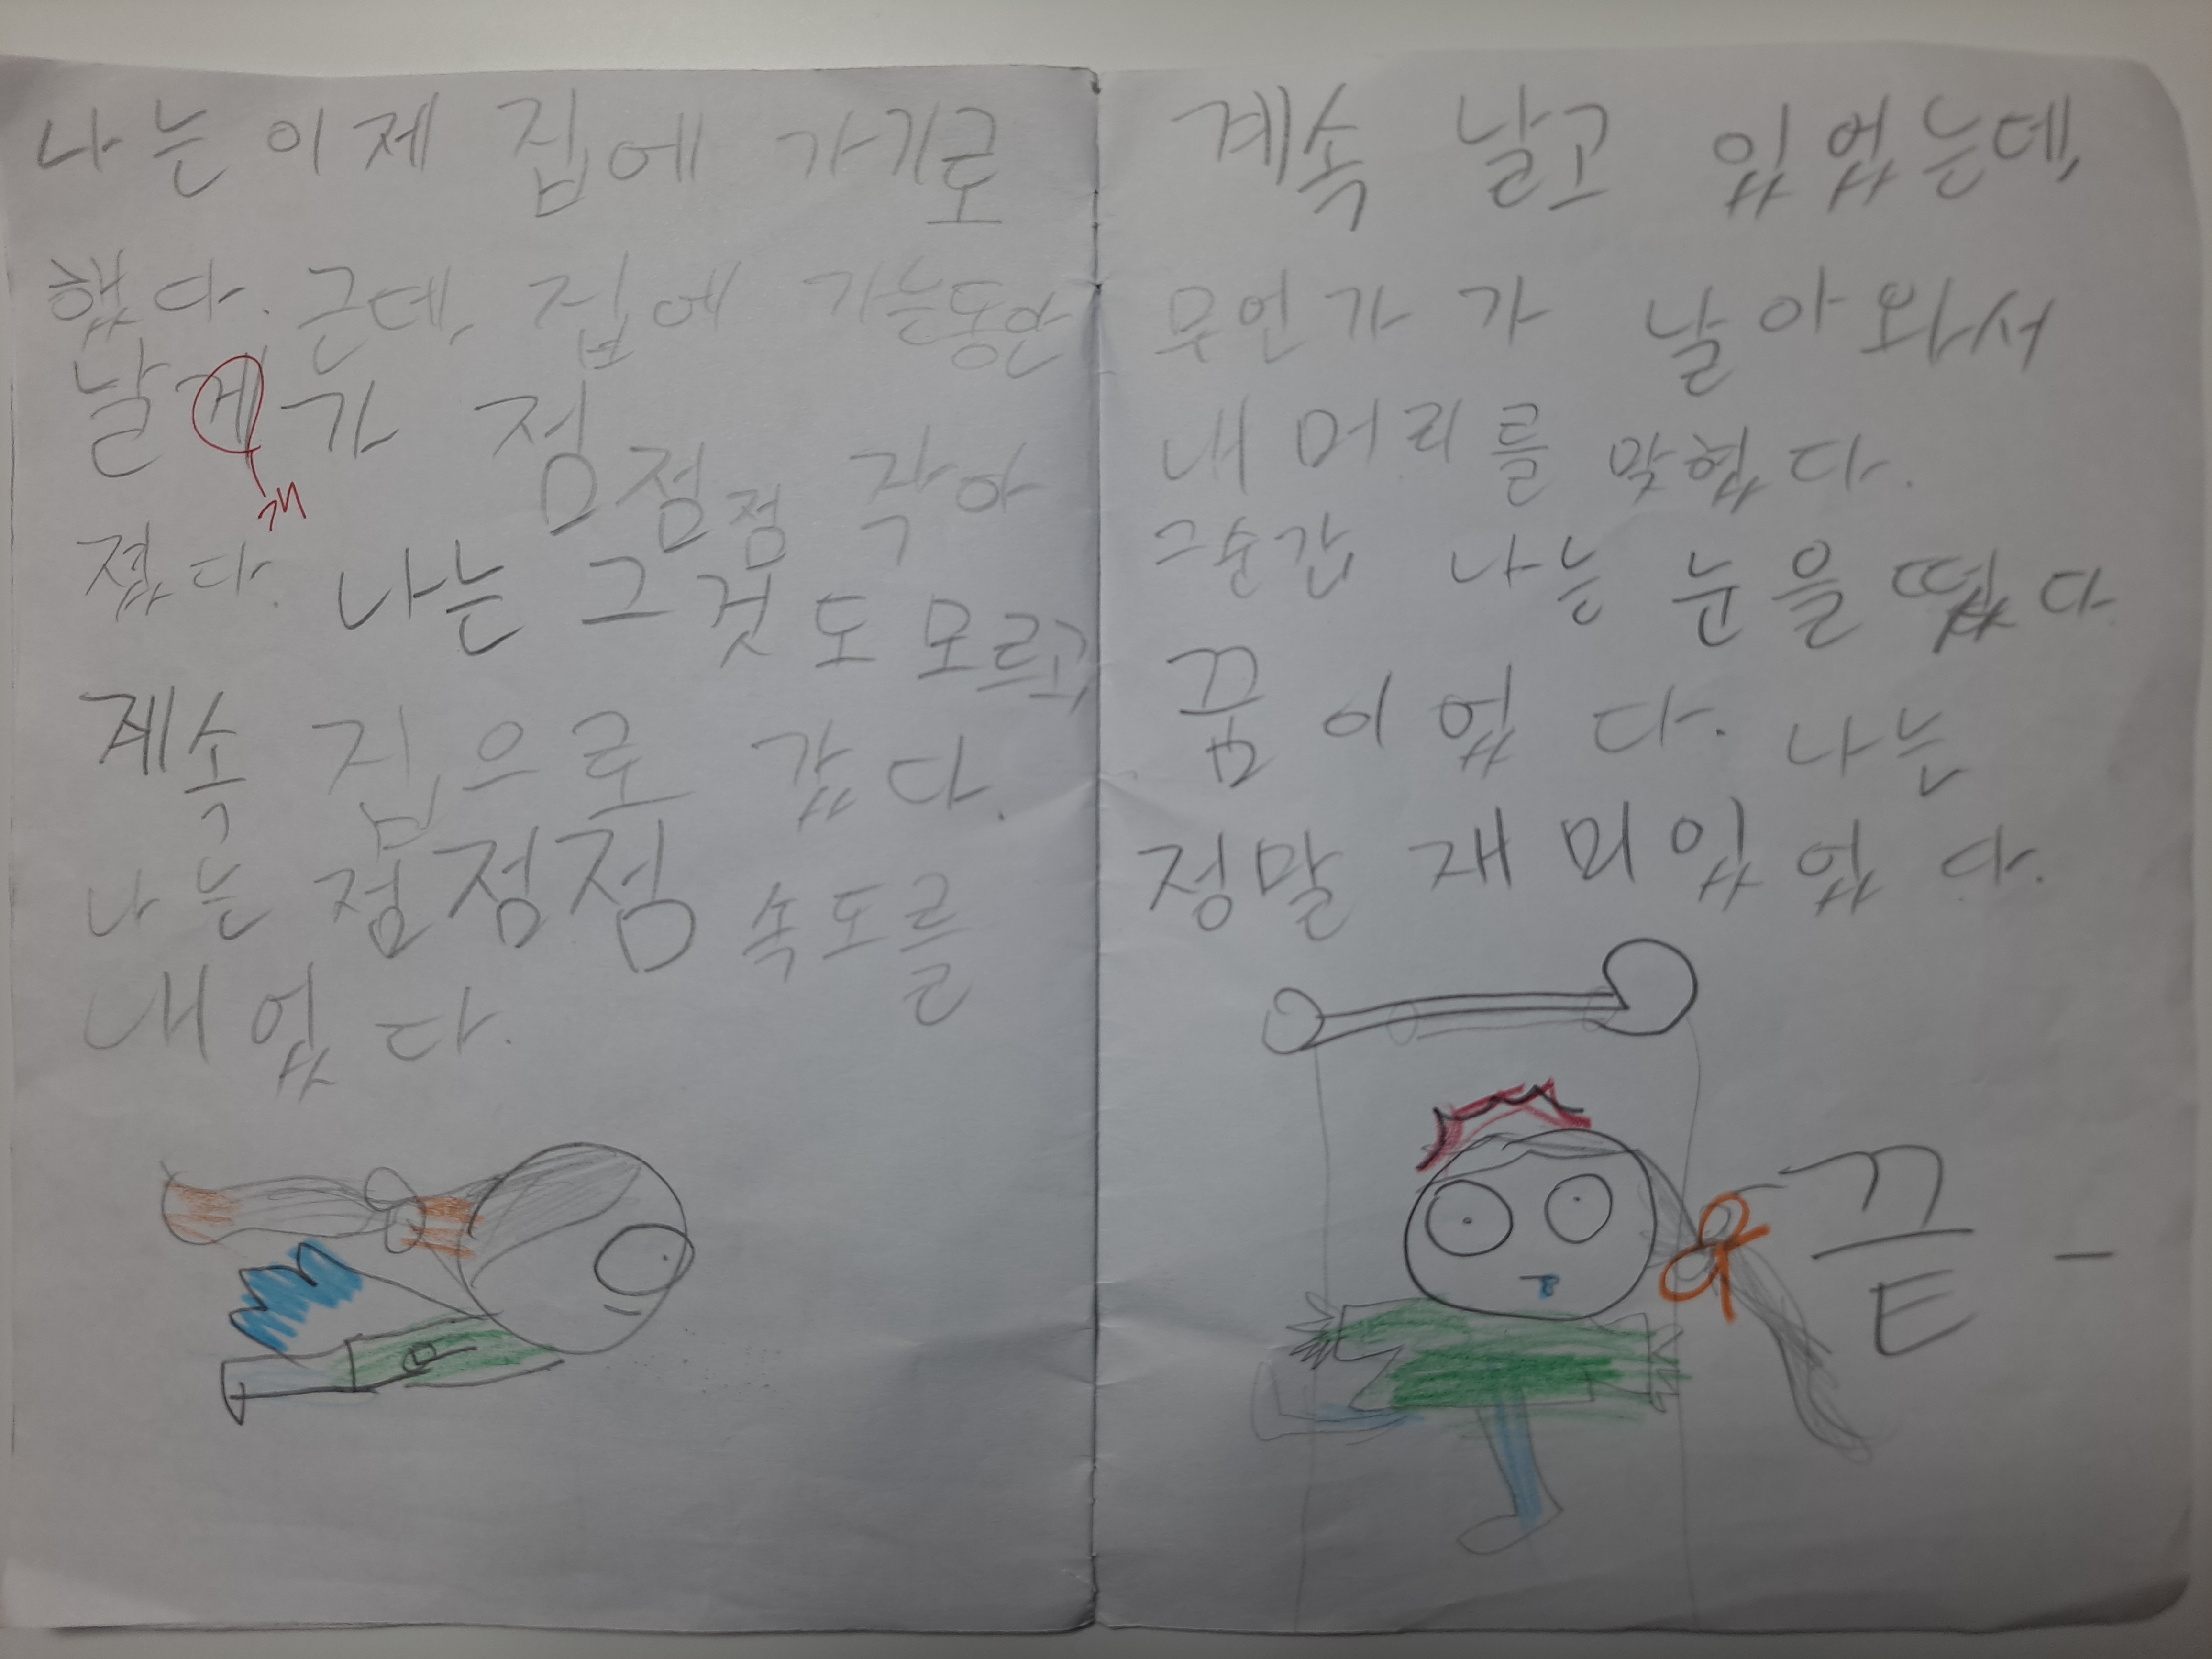 나는 이제 집에 가기로
했다. 근데, 집에 가는동안
날게가 점점점 작아
개
졌다. 나는 그것도 모르고,
계속 집으로 갔다.
나는 점점점 속도를
내었다.
계속 날고 있었는데,
무언가가 날아와서
내 머리를 맞혔다.
그순간 나는 눈을 떴다.
꿈이었다. 나는
정말 재미있었다.
끝-